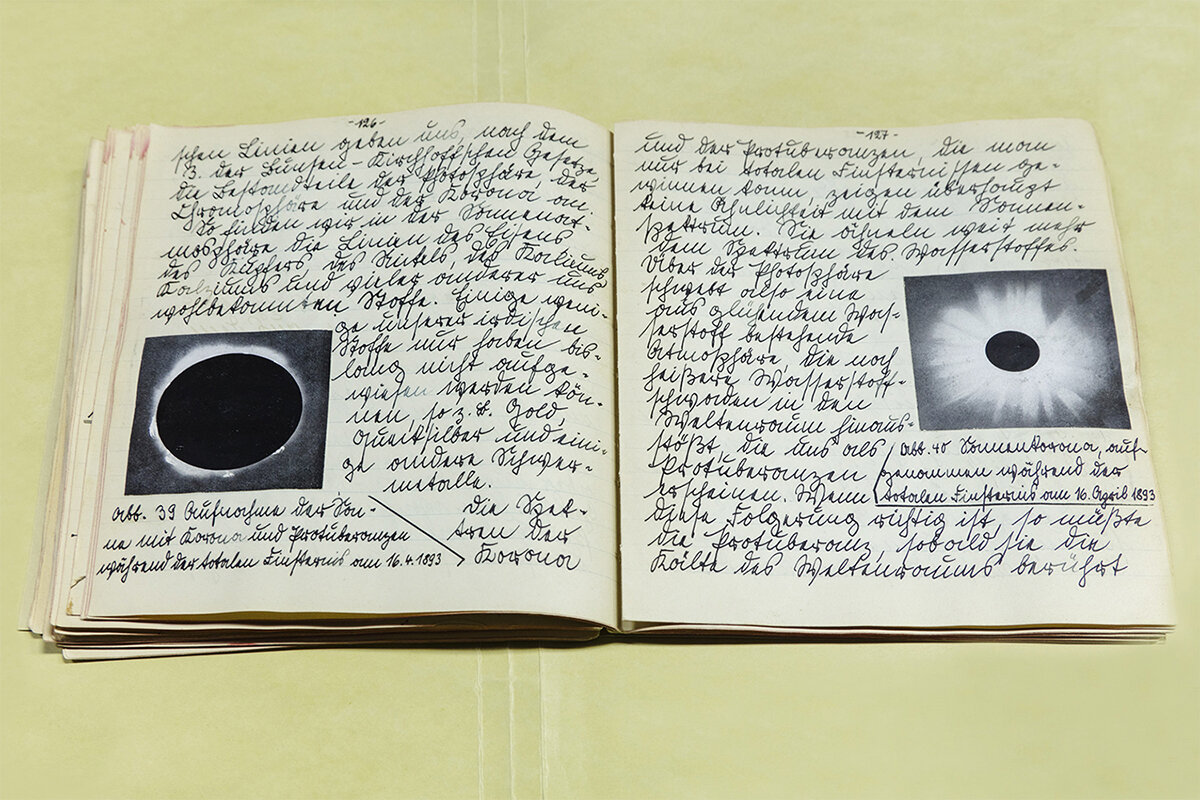 -126-
schen Linien geben uns, nach dem
3. der Bunsen-Kirchhoffschen Gesetze,
die Bestandteile der Photosphäre, der
Chromosphäre und der Korona, an.
So finden wir in der Sonnenat-
mosphäre die Linien des Eisens
des Kupfers, des Nikels, des Kaliums,
Kalziums und vieler anderer uns
wohlbekannten Stoffe. Einige weni-
ge unserer irdischen
Stoffe nur haben bis-
lang nicht aufge-
wiesen werden kön-
nen, so z.B. Gold,
Quecksilber und eini-
ge andere Schwer-
metalle.
Abb. 39 Aufnahme der Son-
ne mit Korona und Protuberanzen
während der totalen Finsternis am 16.4.1893
Die Spek-
tren der
Korona
-127-
und der Protuberanzen, die man
nur bei totalen Finsternissen ge-
winnen kann, zeigen überhaupt
keine Ähnlichkeit mit dem Sonnen-
spektrum. Sie ähneln weit mehr
dem Spektrum des Wasserstoffes.
Über der Photosphäre
schwebt also eine
aus glühendem Was-
serstoff bestehende
Atmosphäre, die noch
heißere Wasserstoff-
schwaden in den
Weltenraum hinaus-
stößt, die uns als
Protuberanzen
erscheinen. Wenn
diese Folgerung richtig ist, so müßte
die Protuberanz, sobald sie die
Kälte des Weltenraums berührt
Abb. 40 Sonnenkorona, auf-
genommen während der
totalen Finsternis am 16. April 1893